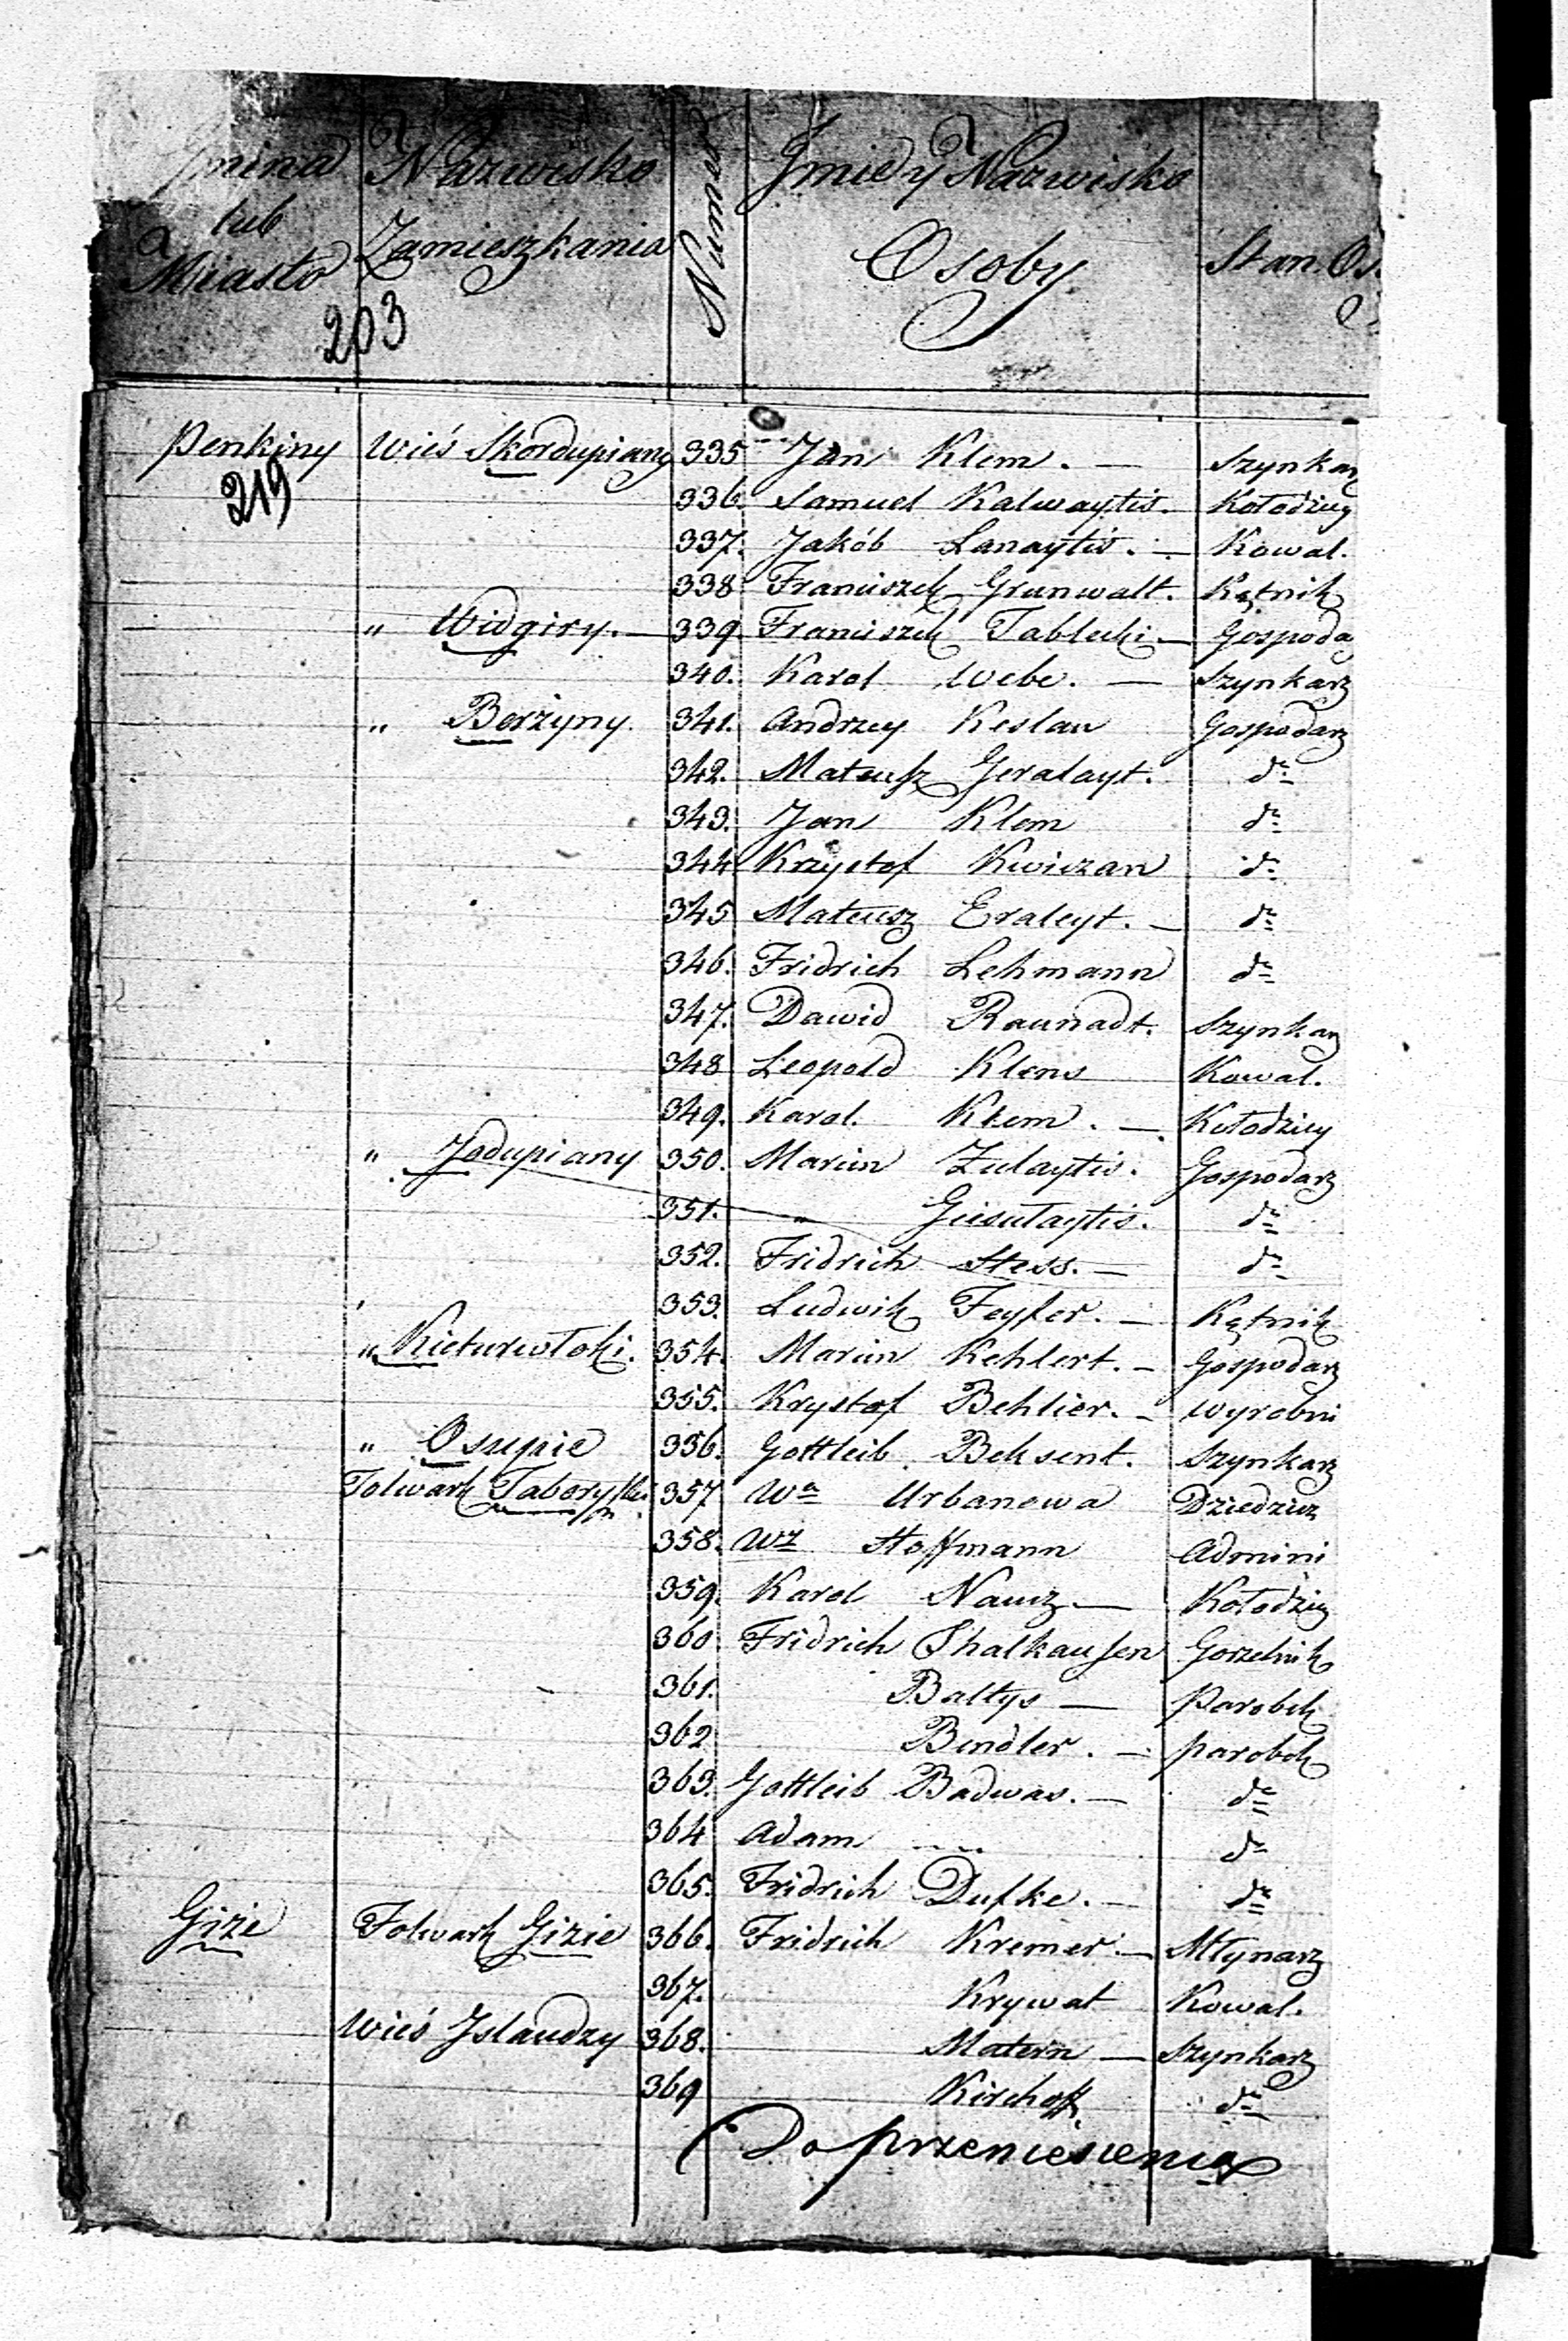 Gmina lub Miasto | Nazwisko Zamieszkania | Numer | Jmie y Nazwisko Osoby | Stan Os.
203
Penkiny | Wieś Skordupiany | 335 | Jan Klem. — | Szynkarz
219
336. | Samuel Kalwaytis. — | Kołodziey
337. | Jakób Lanaytis. — | Kowal.
338 | Franciszek Grunwalt. | Kątnik
" Widgiry. — | 339. | Franciszek Tablecki — | Gospoda
340. | Karol Webe. — | Szynkarz
" Borzyny. | 341. | Andrzey Keslau | Gospodarz
342. | Mateusz Geralayt. | do
343. | Jan Klem | do
344 | Krzystof Kwiczan | do
345 | Mateusz Eraleyt. — | do
346. | Fridrich Lehmann | do
347. | Dawid Raunadt. | Szynkarz
348 | Leopold Klens | Kowal.
349. | Karol. Klem. — | Kołodziey
" Jodupiany | 350. | Marcin Zulaytis. | Gospodarz
351. | " Giesułaytis. | do
352. | Fridrich Hess. — | do
353. | Ludwik Feyfer. — | Kątnik
" Kieturwłoki. | 354. | Marcin Kehlert. — | Gospodarz
355. | Krystof Behlier. — | wyrobni
" Oszupie | 356. | Gottleib Beksent. | Szynkarz
Folwark | 357 | Wa Urbanowa | Dziedzicz
358. | Wz Hoffmann | Admini
359. | Karol Naucz — | Kołodziey
360. | Fridrich Shalkausen | Gorzelnik
361. | Baltys — | Parobek
362 | Bendler. — | parobek
363. | Gottleib Badwas. — | do
364 | Adam .... | do
365. | Fridrich Dufke. — | do
Giźe | Folwark Gizie | 366. | Fridrich Kremer. — | Młynarz
367. | Krywat | Kowal.
Wieś Jslaudzy | 368. | Matern — | Szynkarz
369 | Kirchoff | do
Do przeniesienia